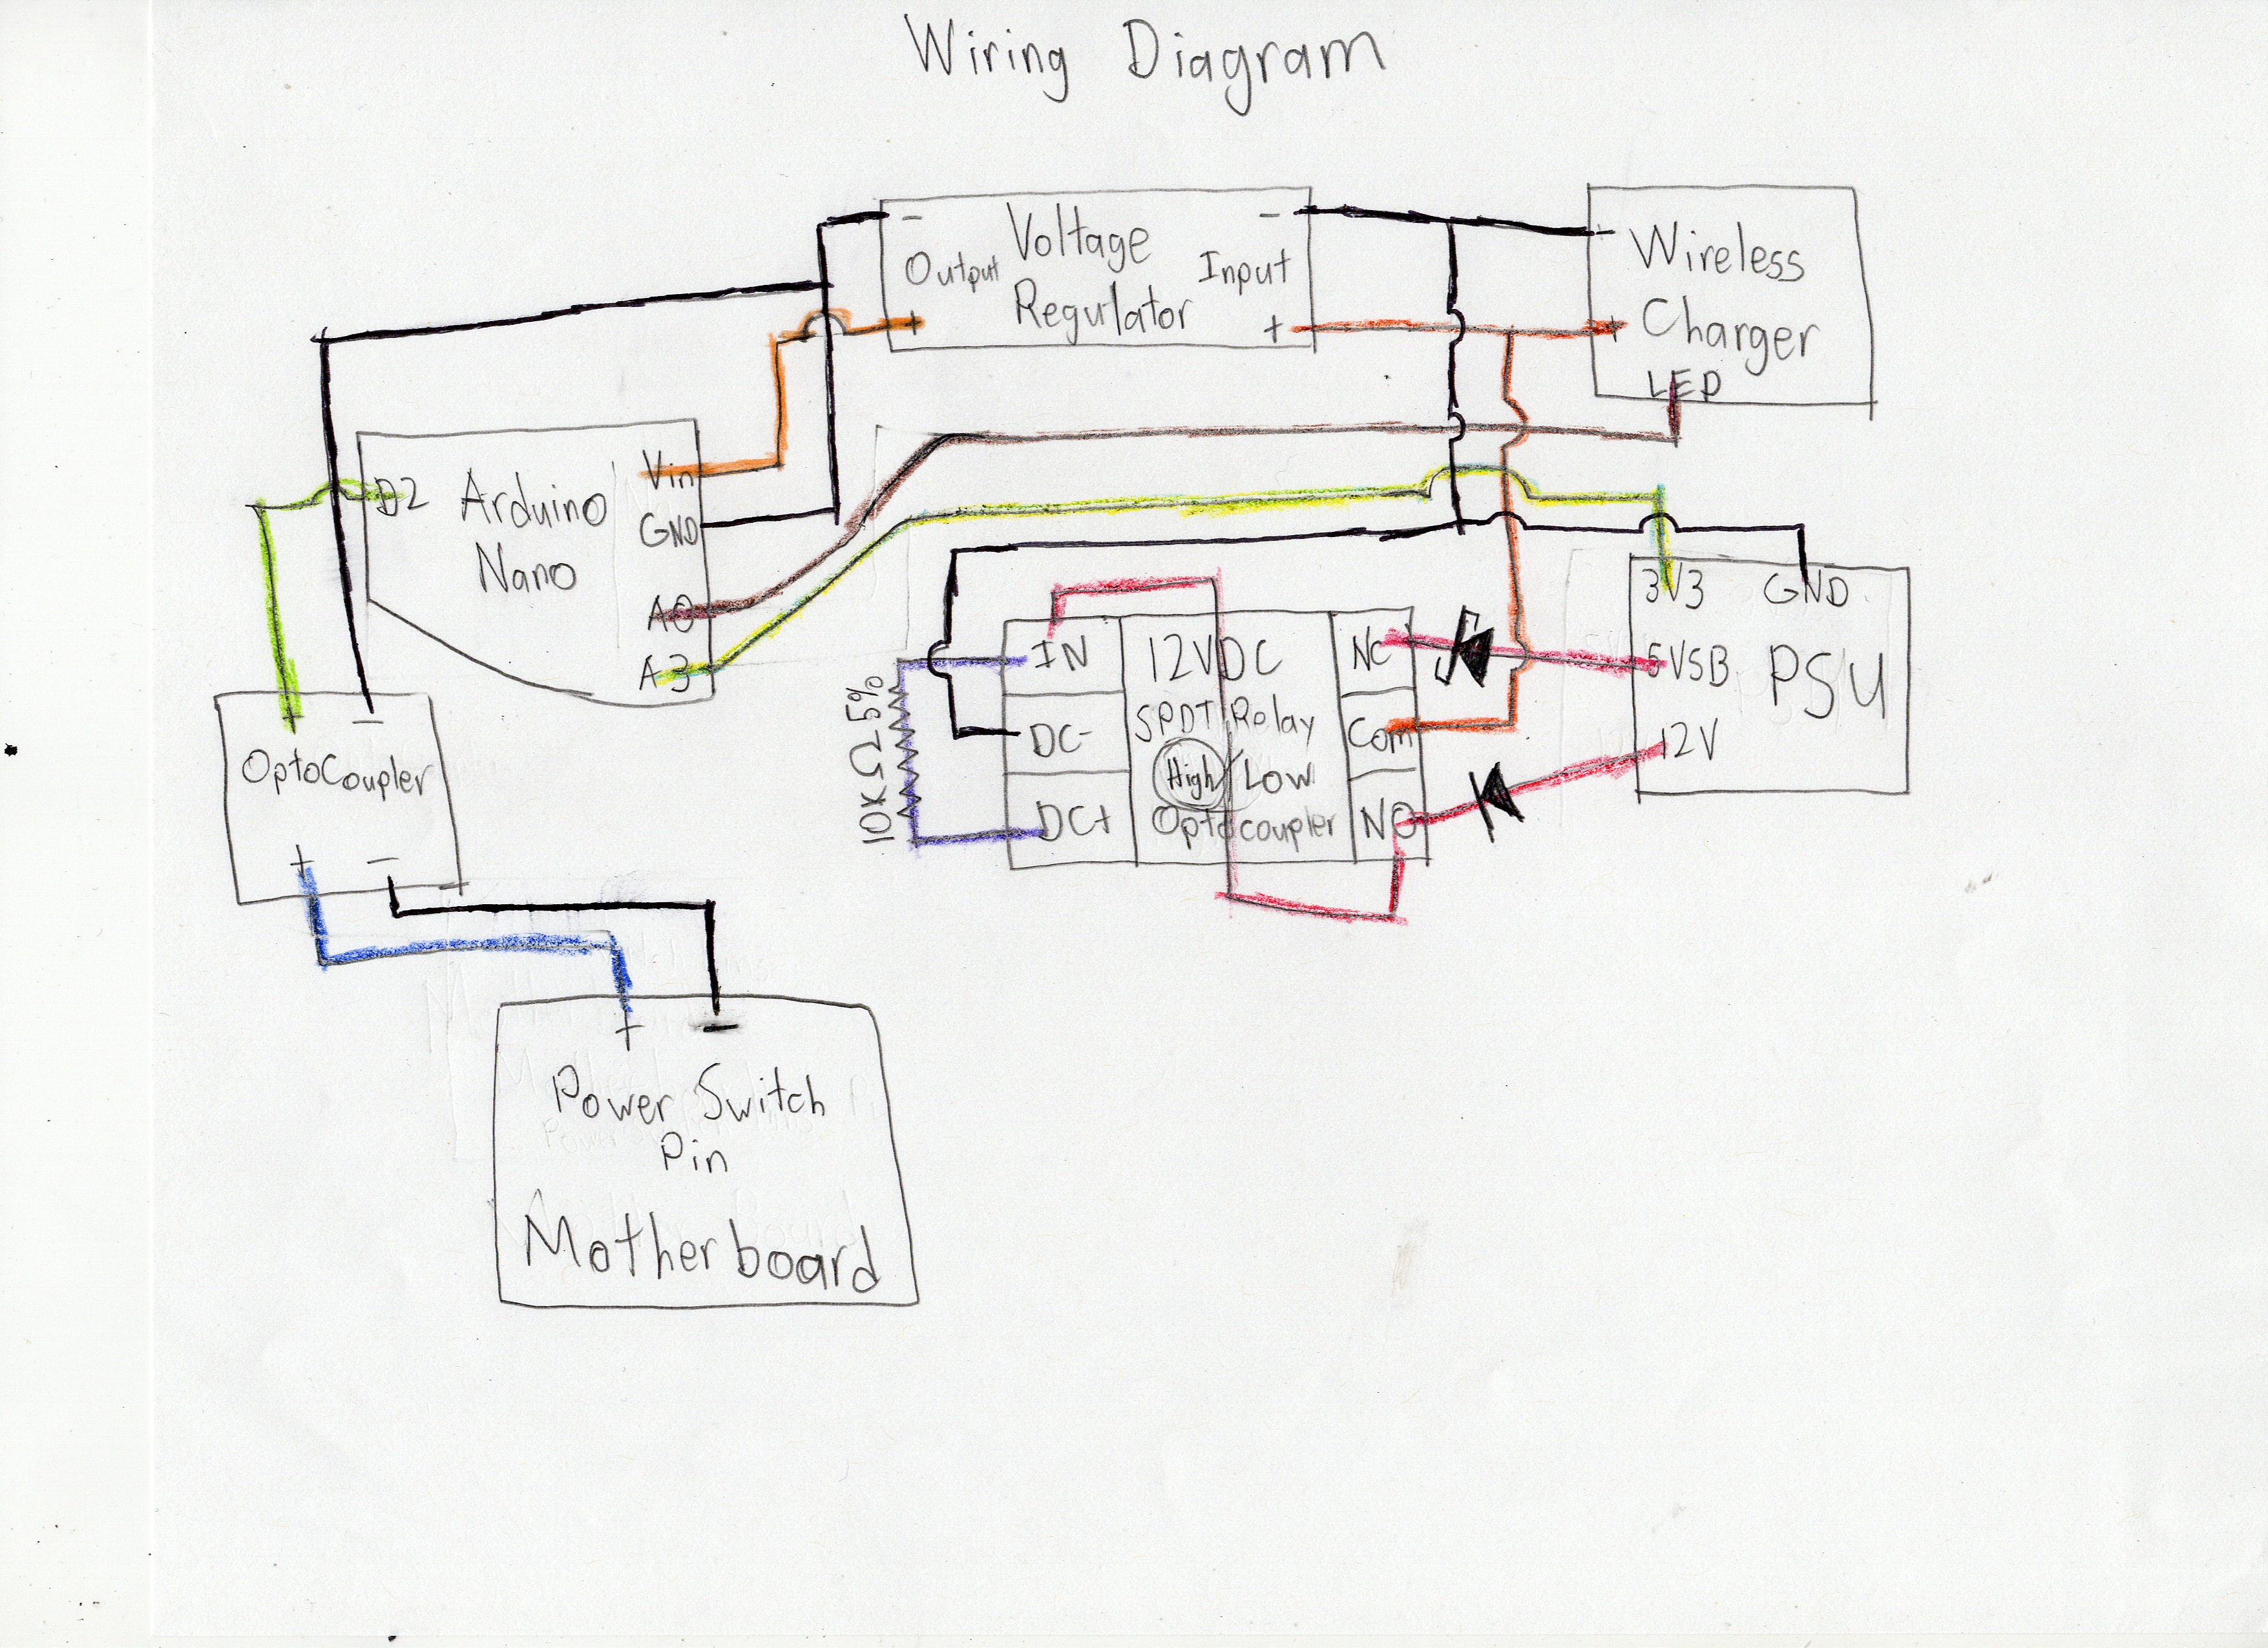 Wiring Diagram
- Voltage -
Output Regulator Input
+ +
- Wireless
+ Charger
LED
D2 Arduino Nano
Vin
GND
A0
A3
+ -
OptoCoupler
+ -
10KΩ 5%
IN
DC-
DC+
12VDC
SPDT Relay
High/Low
Optocoupler
NC
Com
NO
3V3 GND
5VSB PSU
12V
+ -
Power Switch
Pin
Motherboard